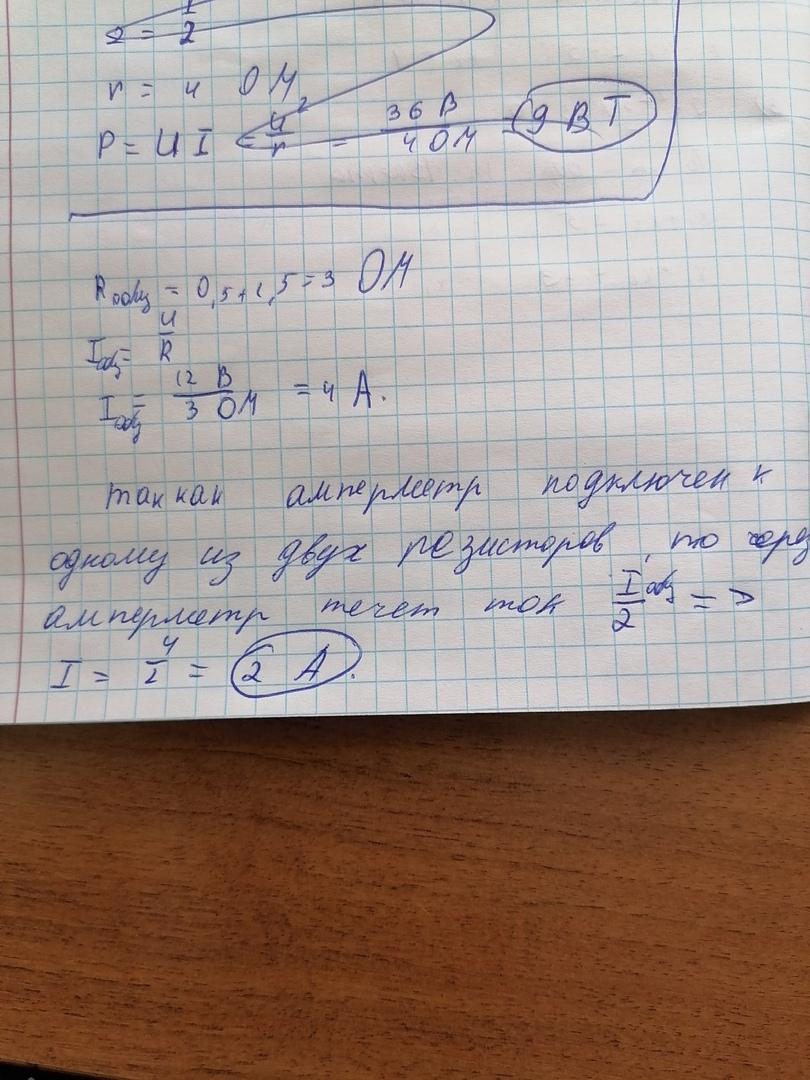 r = 4 ОМ
P = UI = U²/r = 36 В / 4 ОМ = 9 ВТ
Rобщ = 0,5+1,5=3 ОМ
Iобщ = U/R
Iобщ = 12 В / 3 ОМ = 4 А.
так как амперметр подключен к
одному из двух резисторов, то через
амперметр течет ток Iобщ/2 =>
I = 4/2 = 2 А.